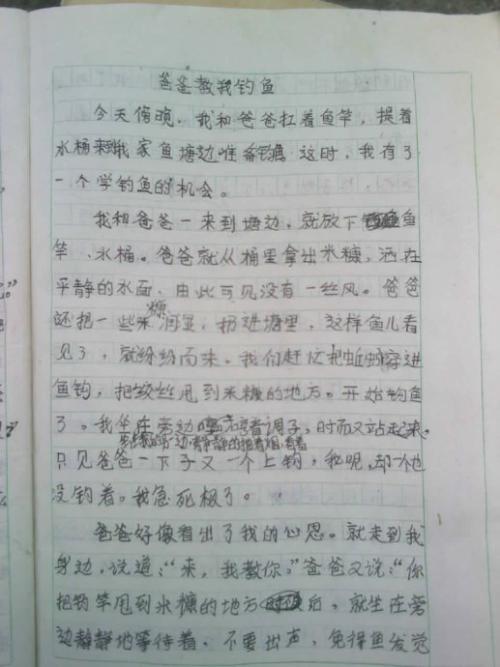 爸爸教我钓鱼
今天傍晚,我和爸爸扛着鱼竿,提着
水桶来到我家鱼塘边准备钓鱼 这时,我有了
一个学钓鱼的机会。
我和爸爸一来到塘边,就放下鱼
竿、水桶。爸爸就从桶里拿出米糠,洒在
平静的水面,由此可见没有一丝风。爸爸
还把一些米糠润湿,扔进塘里,这样鱼儿看
见了,就纷纷而来。我们赶忙把蚯蚓穿进
鱼钩,把绞丝甩到米糠的地方。开始钓鱼
了。我坐在旁边哼着调子,时而又站起来。
爸爸静静的抽着烟
只见爸爸一下子又一个上钩,我呢,却一个也
没钓着。我急死极了。
爸爸好像看出了我的心思。就走到我
身边,说道:“来,我教你,”爸爸又说:“你
把钓竿甩到米糠的地方后,就坐在旁
边静静地等待着,不要出声,免得鱼发觉